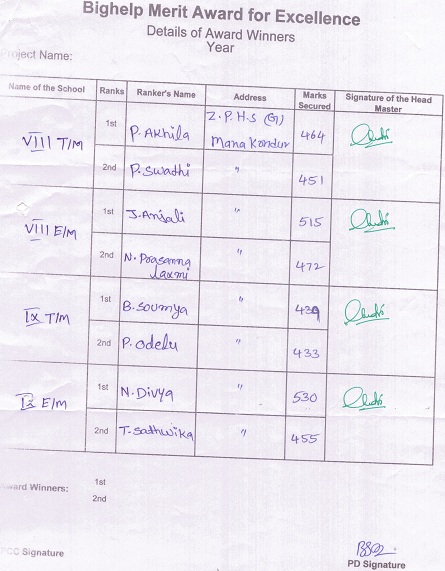 Bighelp Merit Award for Excellence
Details of Award Winners
Year
Project Name:
Name of the School Ranks Ranker's Name Address Marks Secured Signature of the Head Master
VIII T/M 1st P. Akhila Z.P.H.S (G) Mana Kondur 464
2nd P. Swathi " 451
VIII E/M 1st J. Anjali " 515
2nd N. Prasanna Laxmi " 472
IX T/M 1st B. Soumya " 439
2nd P. Odelu 433
IX E/M 1st N. Divya " 530
2nd T. Sathwika " 455
Award Winners: 1st
2nd
Signature
PD Signature